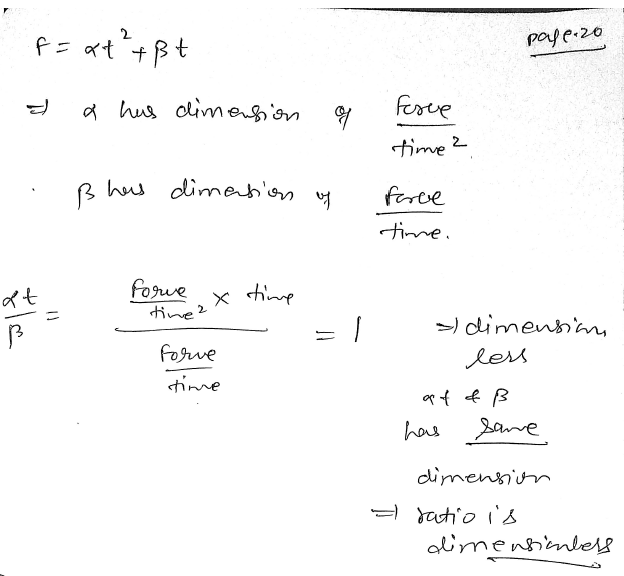 page.20
F = αt² + βt
⇒ α has dimension of Force / time²
. β has dimension of force / time.
αt / β = (Force / time² × time) / (Force / time) = 1 ⇒ dimension
less
αt & β
has same
dimension
⇒ ratio is
dimensionless